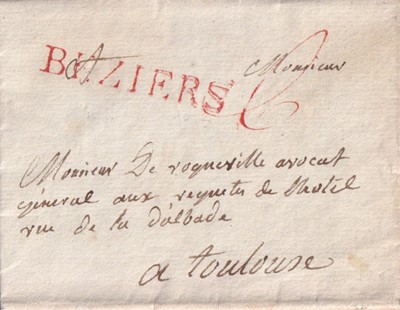 A Monsieur
BEZIERS
Monsieur De roqueville avocat
général aux requetes de l'hotel
rue de la dalbade
a toulouse